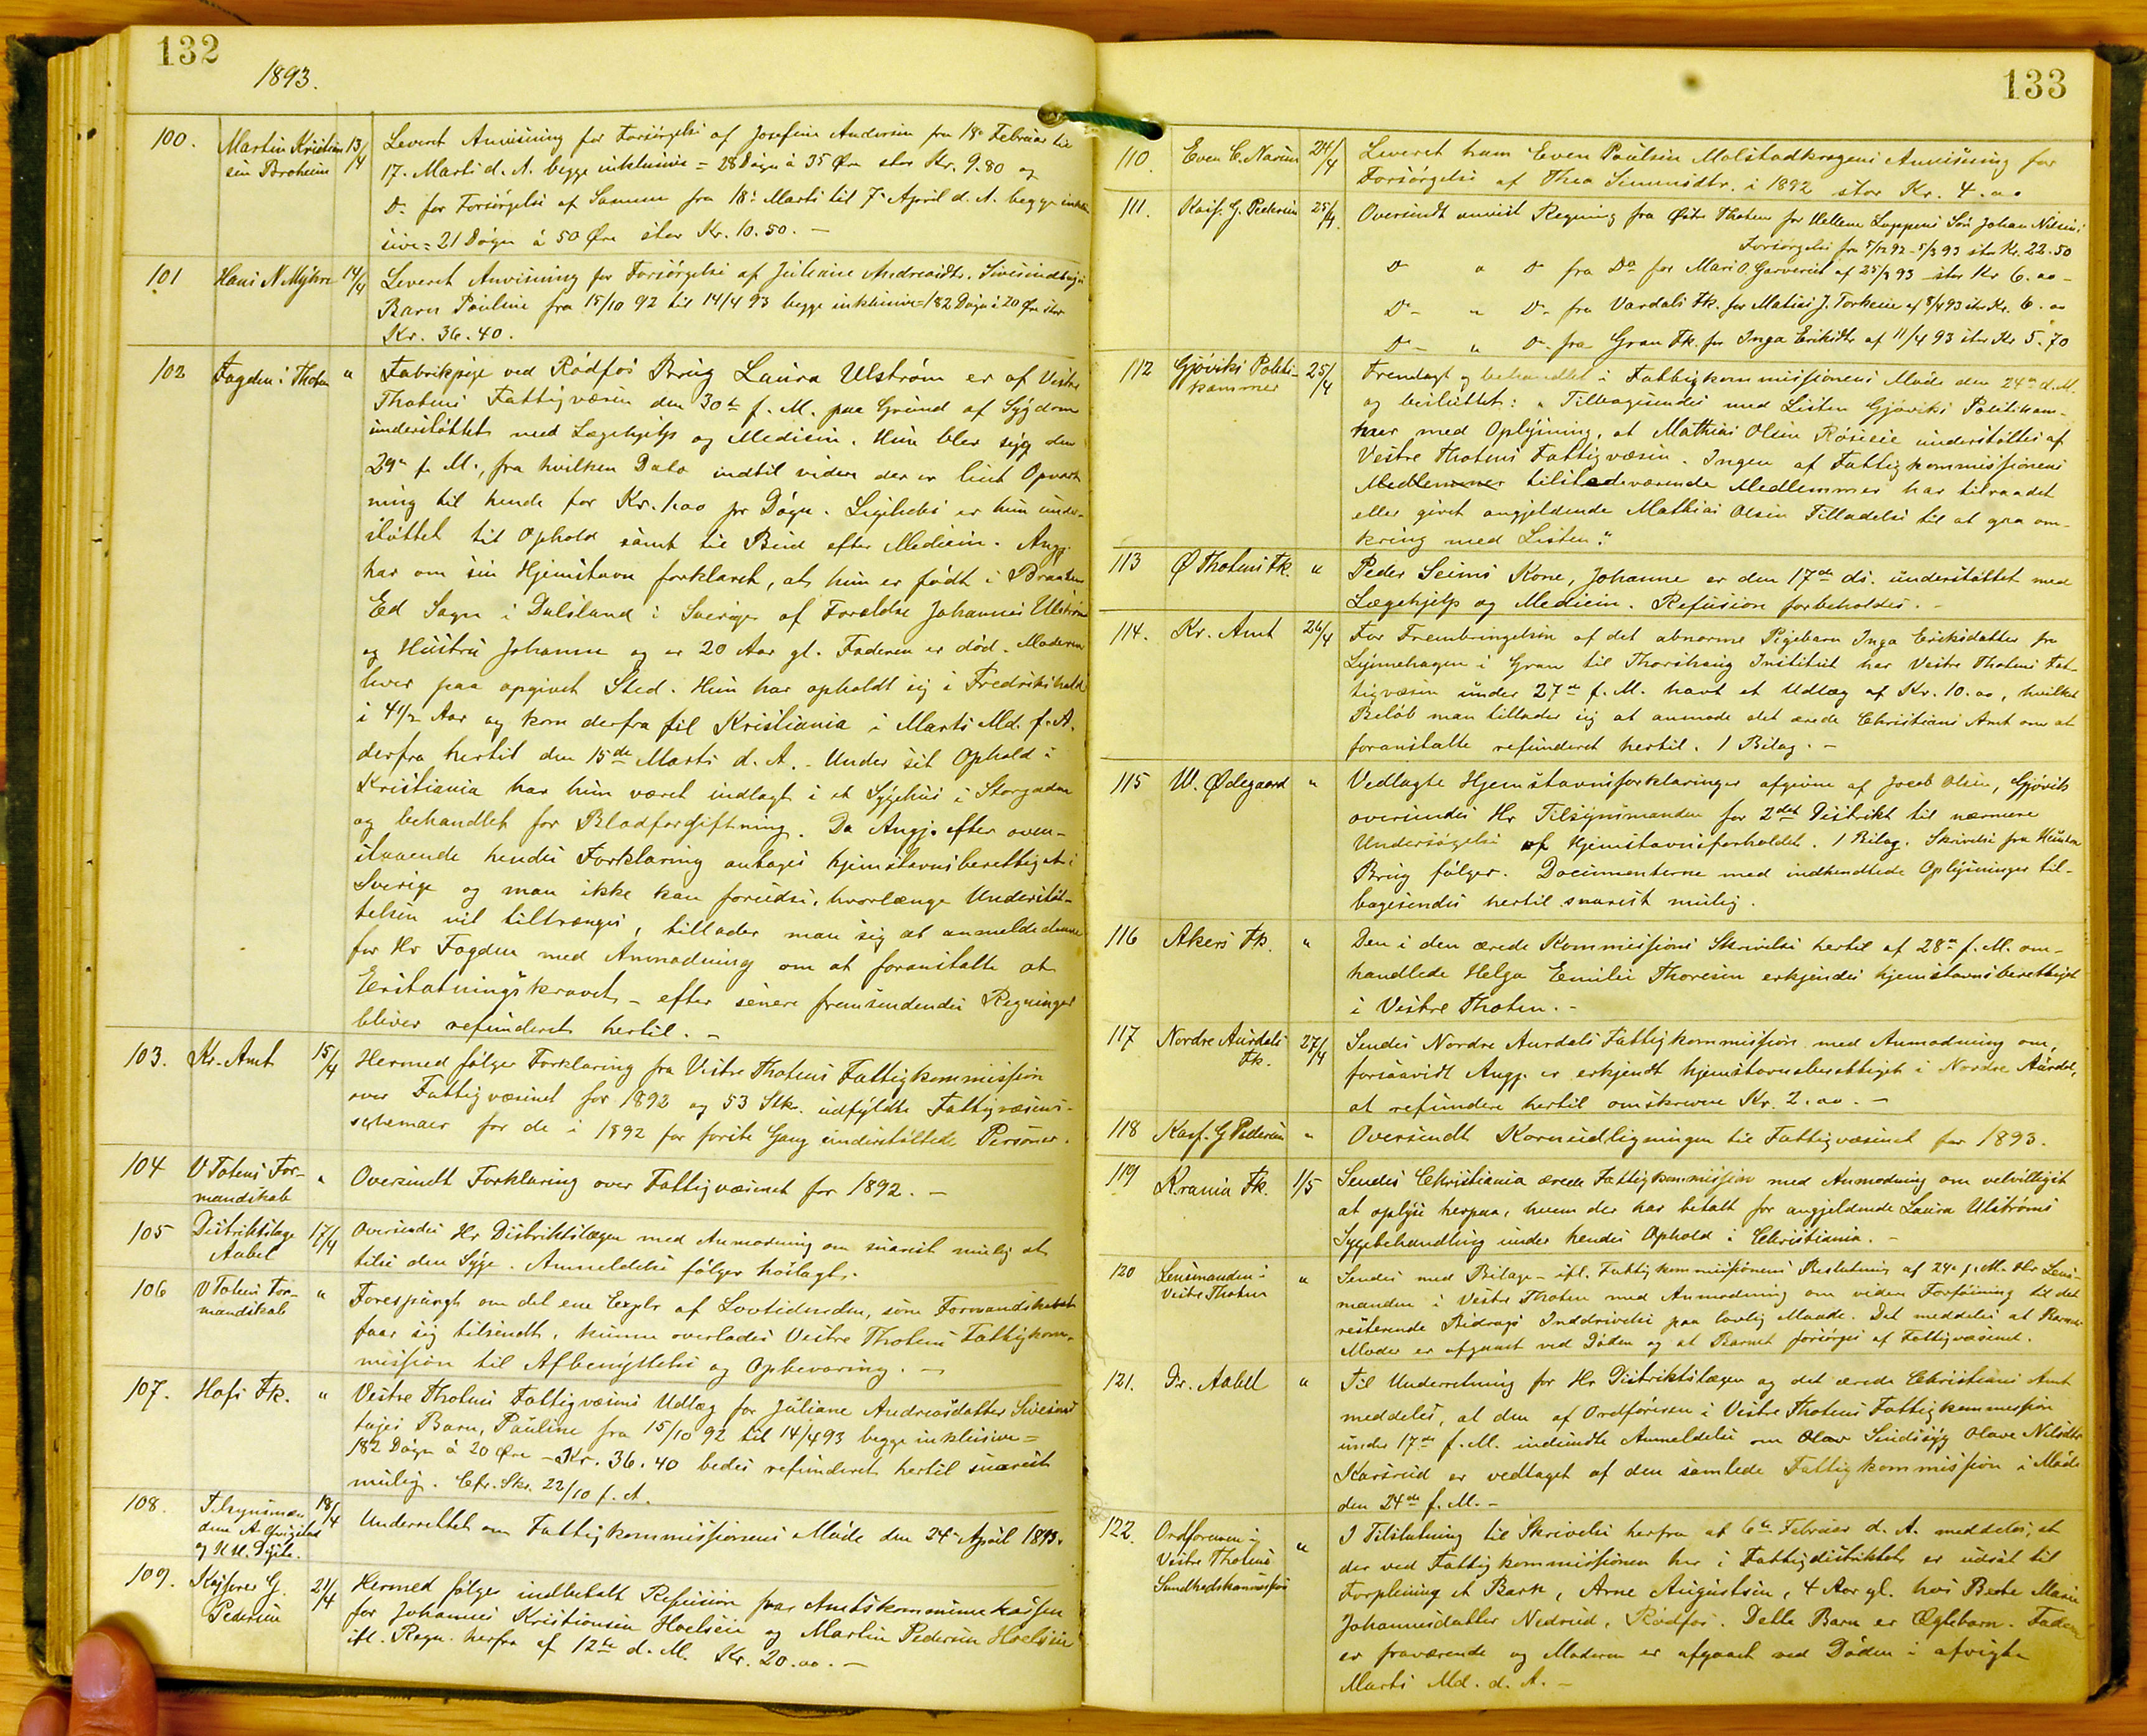 132
1893.
100. Martin Kristian- 13/4 Leveret Anvisning for Forsørgelse af Josefine Andersen fra 18de Februar til
sen Braheim 17. Marts d. A. begge inklusive = 28 Døgn à 35 Øre stor Kr. 9.80 og
Do for Forsørgelse af Samme fra 18de Marts til 7de April d. A. begge inklu-
sive = 21 Døgn à 50 Øre stor Kr. 10.50. —
101 Hans N Myhre 14/4 Leveret Anvisning for Forsørgelse af Juliane Andreasdtr.
Barn Pauline fra 15/10 92 til 14/4 93 begge inklusive = 182 Døgn à 20 Øre stor
Kr. 36.40.
102 Fogden i Thoten " Fabrikpige ved Rødfos Brug Laura Ulstrøm er af Vestre
Thotens Fattigvæsen den 30te f. M. paa Grund af Sygdom
understøttet med Lægehjelp og Medicin. Hun blev syg den
29de f. M., fra hvilken Dato indtil videre der er leiet Opvart-
ning til hende for Kr. 1.00 pr Døgn. Ligeledes er hun under-
støttet til Ophold samt til Bud efter Medicin. Angj.
har om sin Hjemstavn forklaret, at hun er født i Braaten
Ed Sogn i Dalsland i Sverige af Forældre Johannes Ulstrøm
og Hustru Johanne og er 20 Aar gl. Faderen er død. Moderen
lever paa opgivet Sted. Hun har opholdt sig i Fredrikshald
i 4 1/2 Aar og kom derfra til Kristiania i Marts Md. f. A.
derfra hertil den 15de Marts d. A. Under sit Ophold i
Kristiania har hun været indlagt i et Sygehus i Storgaden
og behandlet for Blodforgiftning. Da Angj. efter oven-
staaende hendes Forklaring antages hjemstavnsberettiget i
Sverige og man ikke kan forudse, hvorlænge Understøt-
telsen vil tiltrænges, tillader man sig at anmelde denne
for Hr Fogden med Anmodning om at foranstalte at
Erstatningskravet – efter senere fremsendendes Regninger
bliver refunderet hertil. —
103. Kr. Amt 15/4 Hermed følger Forklaring fra Vestre Thotens Fattigkommission
over Fattigvæsenet for 1892 og 53 Stk. udfyldte Fattigvæsens-
schemaer for de i 1892 for første Gang understøttede Personer.
104 V Totens For- " Oversendt Forklaring over Fattigvæsenet for 1892. —
mandskab
105 Distriktslæge 17/4 Oversendes Hr Distriktslægen med Anmodning om snarest mulig at
Aabel tilse den Syge. Anmeldelse følger hoslagt.
106 V Totens For- " Forespurgt om det ene Explr af Lovtidenden, som Formandskabet
mandskab faar sig tilsendt, kunne overlades Vestre Thotens Fattigkom-
mission til Afbenyttelse og Opbevaring. —
107. Hofs Fk. " Vestre Thotens Fattigvæsens Udlæg for Juliane Andreasdatter
Barn, Pauline fra 15/10 92 til 14/4 93 begge inklusive =
182 Døgn à 20 Øre – Kr. 36.40 bedes refunderet hertil snarest
mulig. Cfr. Skr. 22/10 f. A.
108. Tilsynsmæn- 18/4 Underrettet om Fattigkommissionens Møde den 24de April 1893.
dene A.
og H.
109. Kasserer G. 21/4 Hermed følger indbetalt Refusion fra Amtskommunekassen
Pedersen for Johannes Kristiansen Hoelseie og Martin Pedersen Hoelseie
ifl. Regn. herfra af 12te d. M. Kr. 20.00. —
133
110. Even C. Narum 24/4 Leveret ham Even Paulsen Molstadkragens Anvisning for
Forsørgelse af Thea Simensdtr. i 1892 stor Kr. 4.00
111. Kass. G. Pedersen 25/4. Oversendt anvist Regning fra Østre Thoten for Hellene Loppens Søn Johan Nilsens
Forsørgelse fra 5/12 92 – 5/3 93 stor Kr. 22.50
Do " Do fra Do for Mari O. Garveriet af 25/3 93 stor Kr 6.00 –
Do – " Do – fra Vardals Fk. for Matias J. Torkseie af 8/4 93 stor Kr. 6.00
Do – " Do – fra Gran Fk. for Inga Eriksdtr af 11/4 93 stor Kr 5.70
112 Gjøviks Politi- 25/4 Fremlagt og behandlet i Fattigkommissionens Møde den 24de d. M.
kammer og besluttet: „Tilbagesendes med Listen Gjøviks Politikam-
mer med Oplysning, at Mathias Olsen Røseie understøttes af
Vestre Thotens Fattigvæsen. Ingen af Fattigkommissionens
Medlemmer tilstedeværende Medlemmer har tilraadet
eller givet angjeldende Mathias Olsen Tilladelse til at gaa om-
kring med Listen".
113 Ø Thotens Fk. " Peder Seims Kone, Johanne er den 17de ds. understøttet med
Lægehjelp og Medicin. Refusion forbeholdes. –
114. Kr. Amt 26/4 For Frembringelsen af det abnorme Pigebarn Inga Eriksdatter fra
Lynnehagen i Gran til Thorshaug Institut har Vestre Thotens Fat-
tigvæsen under 27de f. M. havt et Udlæg af Kr. 10.00, hvilket
Beløb man tillader sig at anmode det ærede Christians Amt om at
foranstalte refunderet hertil. 1 Bilag. –
115 W. Ødegaard " Vedlagte Hjemstavnsforklaringer afgivne af Jacob Olsen, Gjøvik
oversendes Hr Tilsynsmanden for 2det Distrikt til nærmere
Undersøgelse af Hjemstavnsforholdet. 1 Bilag. Skrivelse fra Hunton
Brug følger. Documenterne med indhendtede Oplysninger til-
bagesendes hertil snarest mulig.
116 Akers Fk. " Den i den ærede Kommissions Skrivelse hertil af 28de f. M. om-
handlede Helga Emilie Thoresen erkjendes hjemstavnsberettiget
i Vestre Thoten. –
117 Nordre Aurdals 27/4 Sendes Nordre Aurdals Fattigkommission med Anmodning om,
Fk. forsaavidt Angj. er erkjendt hjemstavnsberettiget i Nordre Aurdal,
at refundere hertil omskrevne Kr. 2.00. –
118 Kass. G Pedersen " Oversendt Kornudligningen til Fattigvæsenet for 1893.
119 Krania Fk. 1/5 Sendes Christiania ærede Fattigkommission med Anmodning om velvilligst
at oplyse herpaa, hvem der har betalt for angjeldende Laura Ulstrøms
Sygebehandling under hendes Ophold i Christiania. –
120 Lensmanden i " Sendes med Bilage – ifl. Fattigkommissionens Beslutning af 24de f. M. Hr Lens-
Vestre Thoten manden i Vestre Thoten med Anmodning om videre Forføining til det
resterende Bidrags Inddrivelse paa lovlig Maade. Det meddeles at Barnets
Moder er afgaaet ved Døden og at Barnet forsørges af Fattigvæsenet.
121. Dr. Aabel " Til Underretning for Hr Distriktslægen og det ærede Christians Amt
meddeles, at den af Ordføreren i Vestre Thotens Fattigkommission
under 17de f. M. indsendte Anmeldelse om Olav Sindssyg Olave Nilsdtr
Karsrud er vedtaget af den samlede Fattigkommission i Møde
den 24de f. M. –
122. Ordføreren i " I Tilslutning til Skrivelse herfra af 6te Februar d. A. meddeles, at
Vestre Thotens der ved Fattigkommissionen her i Fattigdistriktet er udsat til
Sundhedskommission Forpleining et Barn, Arne Augustsen, 4 Aar gl. hos Berte Marie
Johannesdatter Nedrud, Rødfos. Dette Barn er Ægtebarn. Faderen
er fraværende og Moderen er afgaaet ved Døden i afvigte
Marts Md. d. A. –